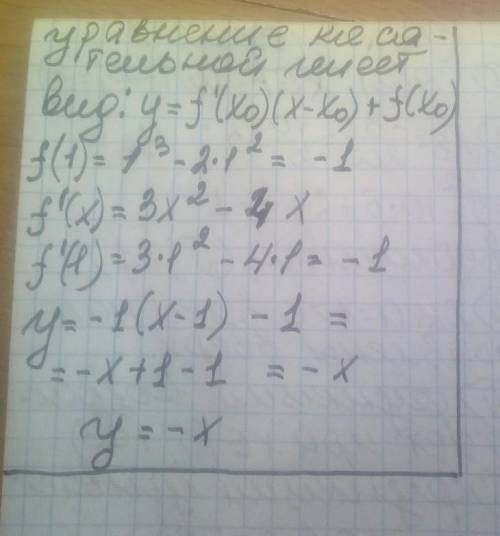 уравнение каса-
тельной имеет
вид: y = f'(x₀)(x-x₀) + f(x₀)
f(1) = 1³ - 2·1² = -1
f'(x) = 3x² - 4x
f'(1) = 3·1² - 4·1 = -1
y = -1(x-1) - 1 =
= -x+1-1 = -x
y = -x